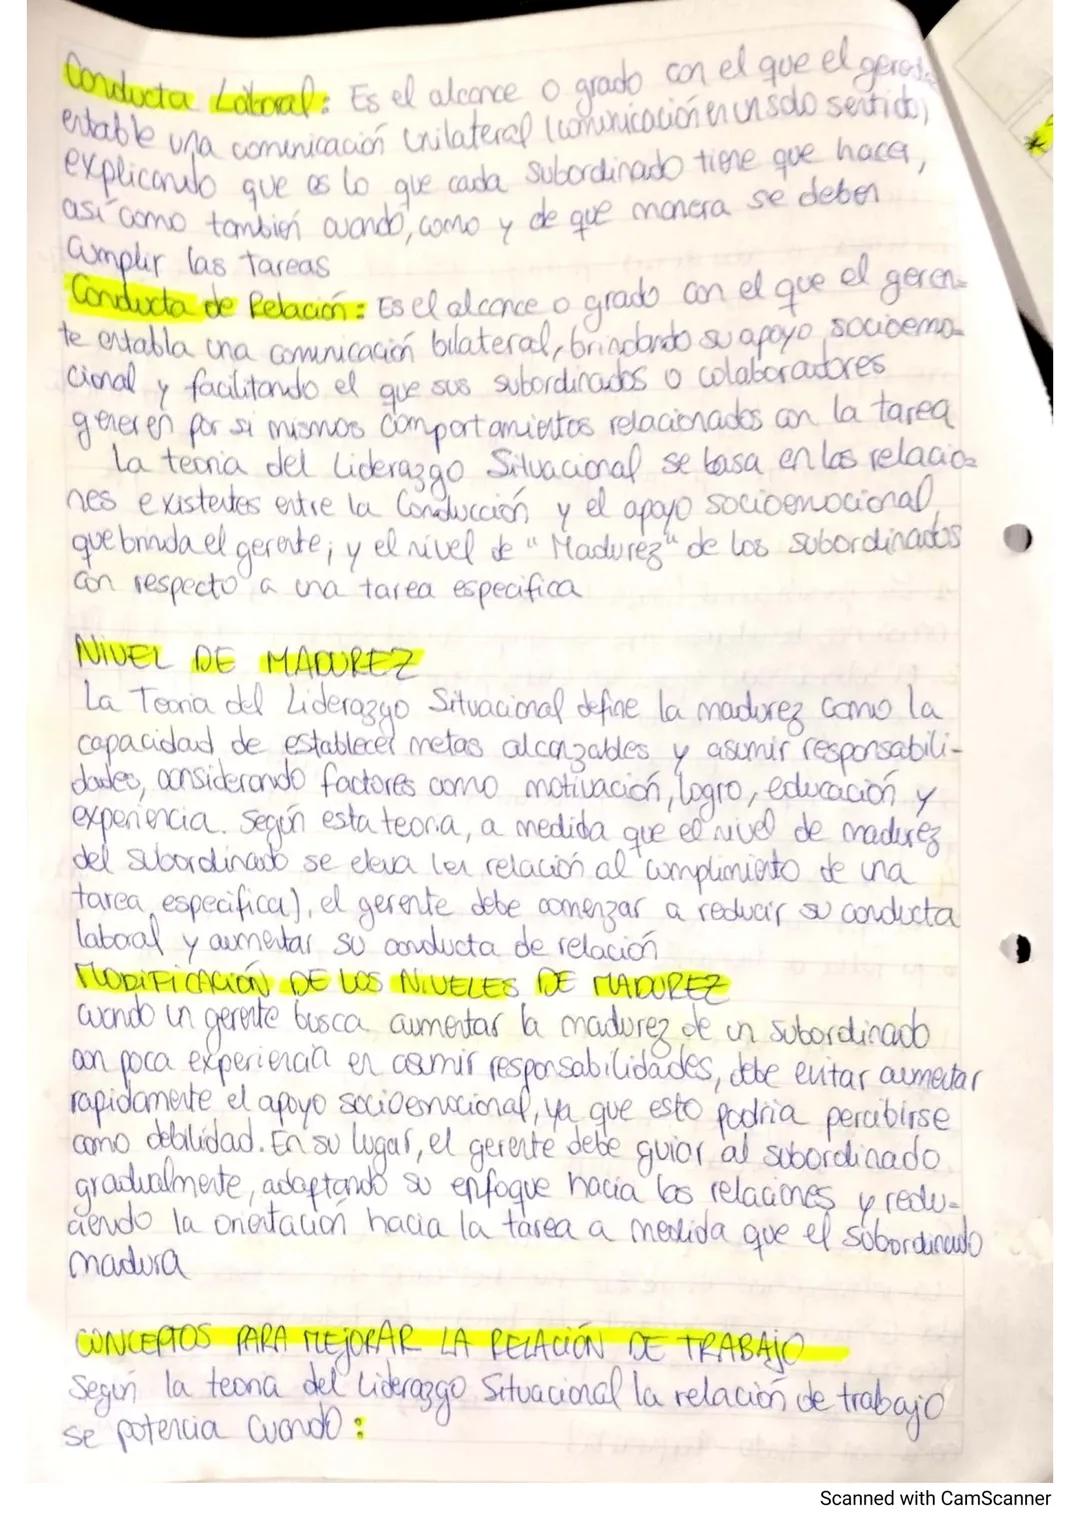 Conducta Laboral: Es el alcance o grado con el que el gerente
estable una comunicación Unilateral (comunicación en un solo sentido)
explicando que es lo que cada subordinado tiene que hacer,
así como también cuando, como y de que manera se deben
cumplir las tareas
Conducta de Relación: Es el alcance o grado con el que el geren-
te establa una comunicación bilateral, brindando su apoyo socioemo-
cional y facilitando el que sus subordinados o colaboradores
generen por si mismos comportamientos relacionados con la tarea
La teoria del Liderazgo Situacional se basa en las relacio-
nes existentes entre la Conducción y el apoyo socioemocional,
que brinda el gerente; y el nivel de "Madurez" de los subordinados
con respecto a una tarea especifica
NIVEL DE MADUREZ
La Teoria del Liderazgo Situacional define la madurez como la
capacidad de establecer metas alcanzables y asumir responsabili-
dades, considerando factores como motivación, logro, educación y
experiencia. Según esta teoria, a medida que el nivel de madurez
del subordinado se eleva (en relación al cumplimiento de una
tarea especifica), el gerente debe comenzar a reducir su conducta
laboral y aumentar su conducta de relación
MODIFICACIÓN DE LOS NIVELES DE MADUREZ
cuando un gerente busca aumentar la madurez de un subordinado
con poca experiencia en asumir responsabilidades, debe evitar aumentar
rapidamente el apoyo socioemocional, ya que esto podria percibirse
como debilidad. En su lugar, el gerente debe guiar al subordinado
gradualmente, adaptando su enfoque hacia las relaciones y redu-
ciendo la orientación hacia la tarea a medida que el subordinado
madura
CONCEPTOS PARA MEJORAR LA RELACIÓN DE TRABAJO
Según la teoria del Liderazgo Situacional la relación de trabajo
se potencia cuando:
Scanned with CamScanner